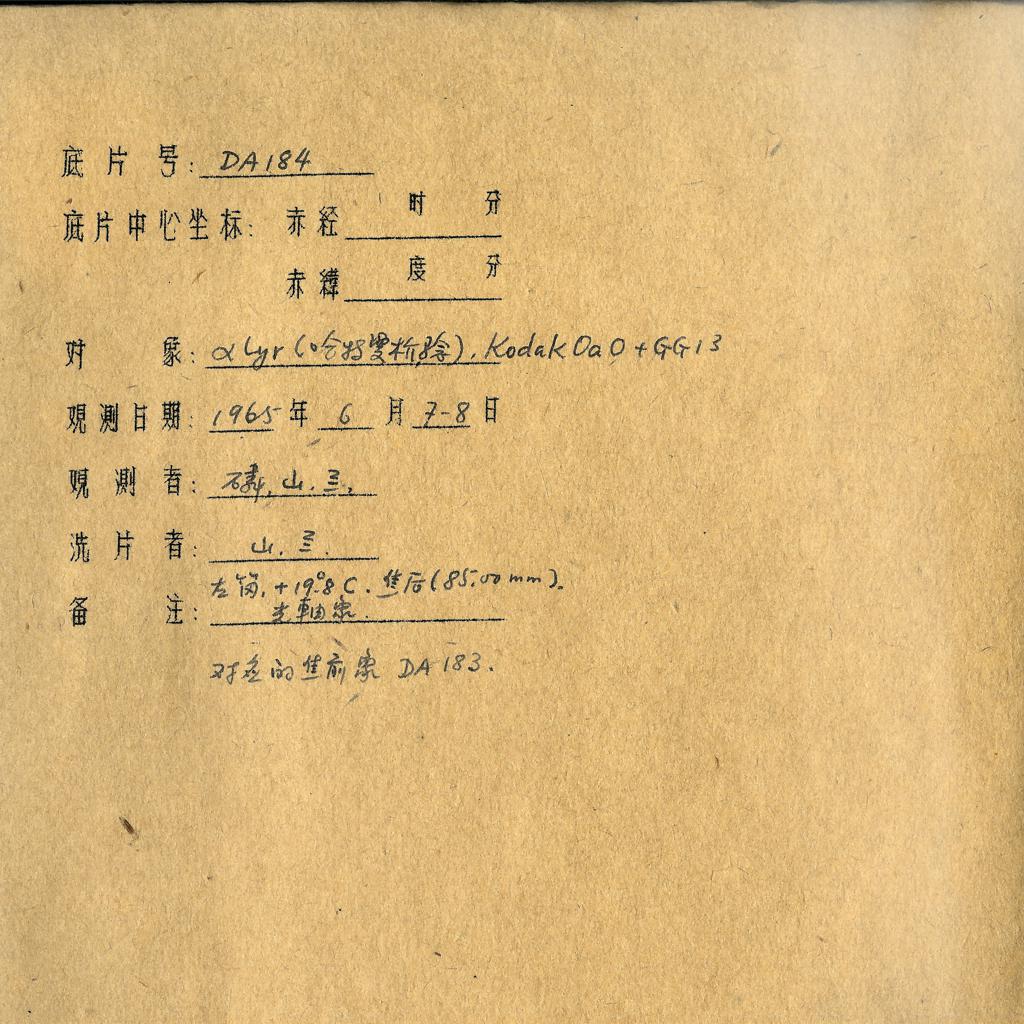 底片号: DA184
时 分
底片中心坐标: 赤经
度 分
赤纬
对象: α Lyr (哈特曼检验). Kodak OaO + GG13
观测日期: 1965年 6月 7-8日
观测者: 磷, 山. 兰.
洗片者: 山. 兰.
+19°.8 C. 焦后 (85.00 mm).
备注: 光轴象.
对应的焦前象 DA183.